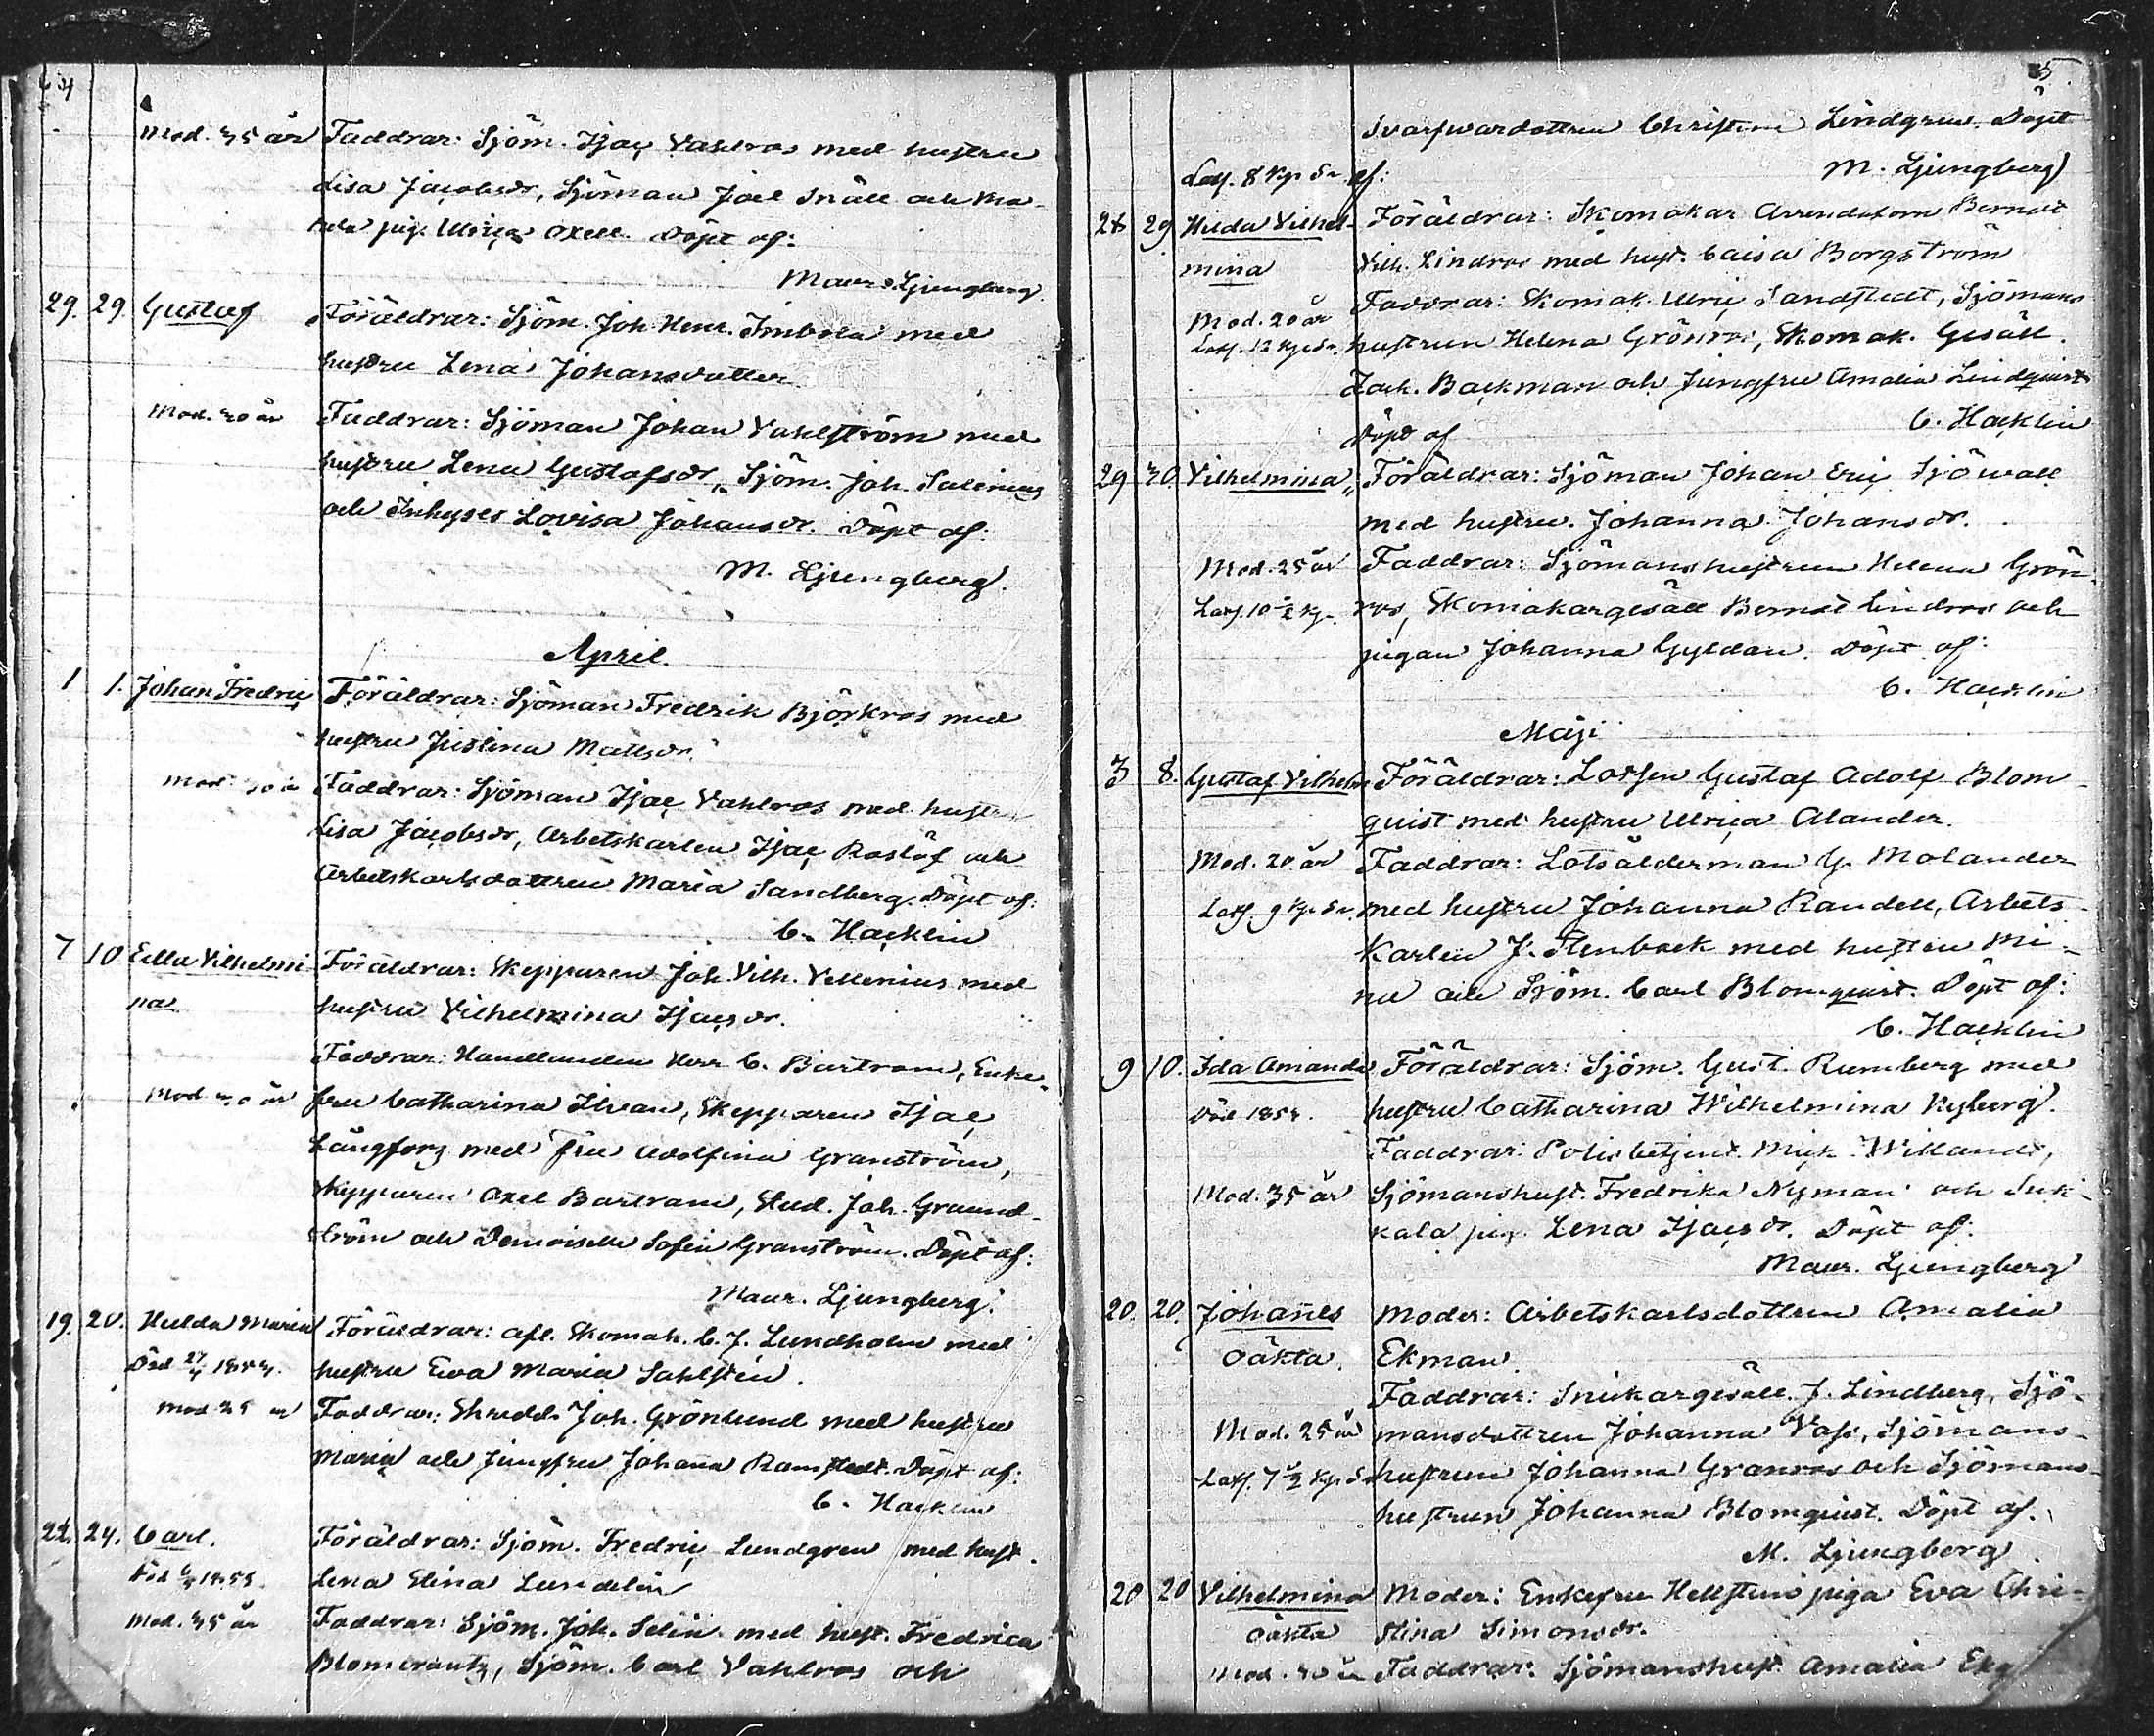 64
Mod. 35 år Faddrar: Sjöm. Isac Vahlros med hustru
Lisa Jacobsdr, Sjöman Joel Snäll och
pig. Ulrica Oxell. Döpt af:
Maur. Ljungberg.
29. 29. Gustaf Föräldrar: Sjöm. Joh. Henr. Imbola med
hustru Lena Johansdotter
Mod. 30 år Faddrar: Sjöman Johan Vahlström med
hustru Lena Gustafsdr, Sjöm. Joh. Salenius
och Inhyses Lovisa Johansdr. Döpt af:
M. Ljungberg.
April.
1 1. Johan Fredric Föräldrar: Sjöman Fredrik Björkros med
hustru Justina Mattsdr.
Mod. 30 år Faddrar: Sjöman Isac Vahlros med hustru
Lisa Jacobsdr, Arbetskarlen Isac Roslöf och
Arbetskarlsdottren Maria Sandberg. Döpt af:
C. Hacklin
7 10 Edla Vilhelmi- Föräldrar: Skepparen Joh. Vilh. Vellenius med
na hustru Vilhelmina Isacsdr.
Faddrar: Handlanden Herr C. Bartram, Enke-
Mod 30 år fru Catharina Ilvan, Skepparen Isac
Långfors med Fru Adolfina Granström,
Skepparen Axel Bartram, Stud. Joh. Graund-
ström och Demoiselle Sofia Granström. Döpt af:
Maur. Ljungberg.
19. 20. Hulda Maria Föräldrar: afl. Skomak. C. J. Lundholm med
Död 27/4 hustru Eva Maria Sahlstén.
Mod 25 år Faddrar: Skredd. Joh. Grönlund med hustru
Maria och Jungfru Johanna Ramstedt. Döpt af:
C. Hacklin
22. 24. Carl. Föräldrar: Sjöm. Fredric Lundgren med hust.
Död Lena Stina Lundelin
Mod. 35 år Faddrar: Sjöm. Joh. Selin med hust. Fredrica
Blomcrantz, Sjöm. Carl Vahlros och
5.
Svarfwardottren Christina Lindgren. Döpt
Lösf. 8 Kp. Sr. af: M. Ljungberg
28 29 Hilda Vilhel- Föräldrar: Skomakar Arrendatorn Berndt
mina Vilh. Lindros med hust. Caisa Borgström
Mod. 20 år Faddrar: Skomak. Ulric Sandstedt, Sjömans
12 Kp. Sr. hustrun Helena Grönros, Skomak. Gesäll.
Zach. Backman och Jungfru Amalia Lindquist
Döpt af C. Hacklin
29 30. Vilhelmina Föräldrar: Sjöman Johan Eric Sjöwall
med hustru Johanna Johansdr.
Mod. 25 år Faddrar: Sjömans hustrun Helena Grön-
10 1/2 Kp. ros, Skomakargesäll Berndt Lindros och
pigan Johanna Gyldan. Döpt af:
C. Hacklin
Maji
3 8. Gustaf Vilhelm Föräldrar: Lotsen Gustaf Adolf Blom-
quist med hustru Ulrica Alander.
Mod. 20 år Faddrar: Lotsålderman G. Molander
9 Kp. Sr. med hustru Johanna Randell, Arbets-
karlen J. Stenback med hustru Mi-
na och Sjöm. Carl Blomquist. Döpt af:
C. Hacklin
9 10. Ida Amanda Föräldrar: Sjöm. Gust. Rumberg med
Död hustru Catharina Wilhelmina Nyberg.
Faddrar: Polisbetjent. Mich. Willandt,
Mod. 35 år Sjömanshust. Fredrika Nyman och Suk-
kala pig. Lena Isacsdr. Döpt af:
Maur. Ljungberg
20. 20. Johannes Moder: Arbetskarlsdottren Amalia
Oäkta. Ekman.
Faddrar: Snickargesäll. J. Lindberg, Sjö-
Mod. 25 år mansdottren Johanna Vass, Sjömans-
7 1/2 Kp. Sr hustrun Johanna Granros och Sjömans-
hustrun Johanna Blomquist. Döpt af.
M. Ljungberg.
20 20 Vilhelmina Moder: Enkefru Hellstens piga Eva Chri-
Oäkta stina Simonsdr.
Mod. 30 år Faddrar: Sjömanshust. Amalia